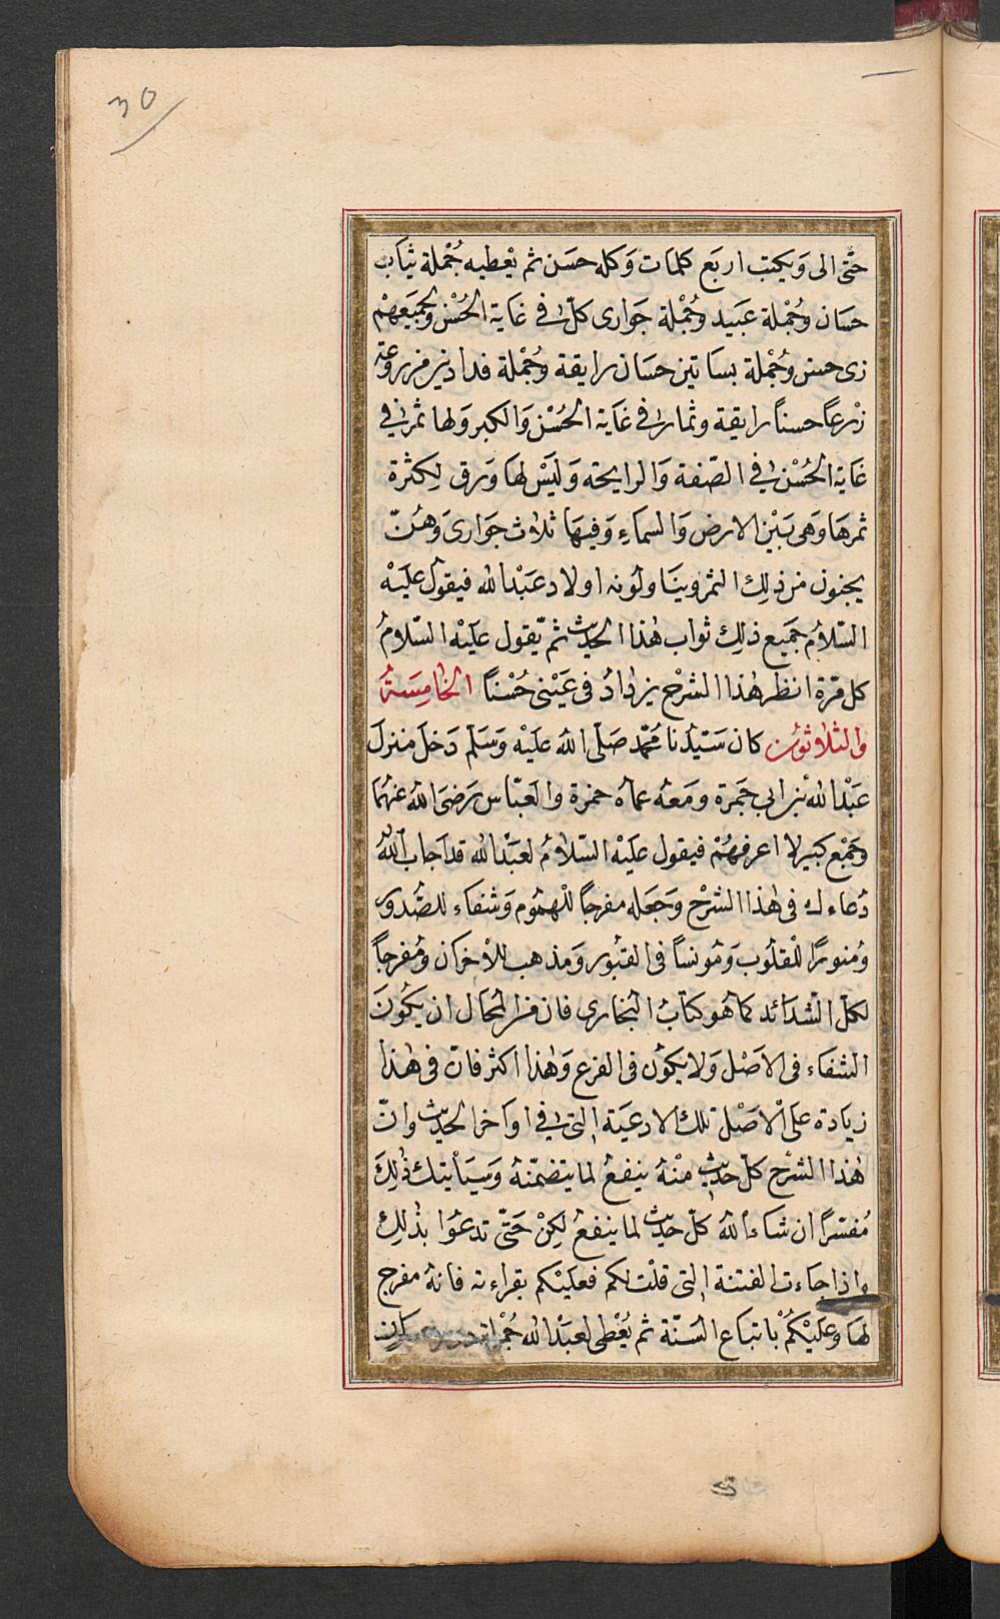 30
حتّى الى وَيكتب اربَع كلمات وَكله حسَن ثم يْعطيه جُمْلة ثيَاب
حسَان وجُمْلة عبَيد وجُمْلة جوَارى كلّ فى غايَة الحُسْن وَجميَعهمْ
زى حسن وجُمْلة بسَاتين حسَان رايقة وجُمْلة فدادين مزروعَة
زرْعاً حسناً رايقة وثمار فى غاَية الحُسْن وَالكبر وَلها ثمر فى
غاية الحُسْن فى الصّفة وَالرايحة وَليَسْ لها وَرق لِكثرة
ثمرهَا وَهى بَيْن الارض وَالسماءِ وَفيهَا ثلاث جوَارىَ وَهنّ
يجنون من ذلِك الثمر وينَاولوُنه اولاد عبَدْ الله فيقول علَيْه
السّلامُ جمَيع ذلِك ثواب هٰذا الحديث ثم يّقول عليَه السّلامُ
كل مَرّة انظر هٰذا الشرْح يزدادُ فى عَيْنى حُسْناً الخامِسَة
وَالثلاثوُن كان سَيّدنا مُحمّد صَلّى الله علَيْه وَسَلّم دَخل منزلَ
عبَدْ الله بْن ابى جَمَرة ومَعَه عماه حمزة وَالعَبّاس رَضىَ الله عنهُمَا
وَجَمْع كبير لا اعرفهُمْ فيقول علَيْه السّلامُ لعبَدْ الله قد اَجابَ اللهُ
دُعاءك فى هٰذا الشرْح وَجَعَله مفرجاً للْهمُوم وَشفاء للصّدور
وَمُنورًا للْقلوُب وَموُنساً فى القبوُر وَمذهب للاْحزان وَمُفرجاً
لكلّ الشدَائد كمَا هُو كتابُ البُخارى فان من المحَال ان يكوُنَ
الشفاء فى الاصَْل وَلا يكوُن فى الفرع وَهٰذا اكثر فانّ فى هٰذا
زيَادة علىَ الاَصْل تلك الادعيَة التى فى اوَاخر الحديث وانّ
هٰذا الشرْح كلّ حديث منْهُ ينفعُ لما يتضمّنهُ وَسَيَأيتك ذٰلِكَ
مُفسّرًا ان شاءَ اللهُ كلّ حديث لما ينفعُ لكِنْ حَتّى تدعُوَا بذٰلِك
واذا جاءت الفتنة التى قلْت لكم فعليَْكم بقراءته فانهُ مفرج
لها وعليَْكُمْ باتباع السّنّة ثم يُعْطى لعبَدْ الله